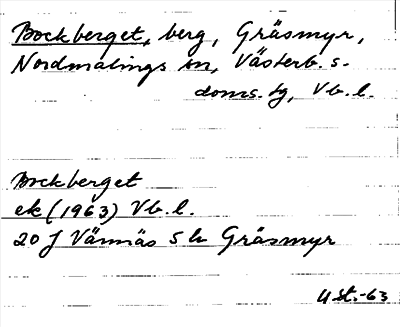 Bockberget, berg, Gräsmyr,
Nordmalings sn, Västerb. s.
doms. tg, Vb. l.
Bockberget
ek (1963) Vb. l.
20 J Vännäs S b Gräsmyr
U st. -63